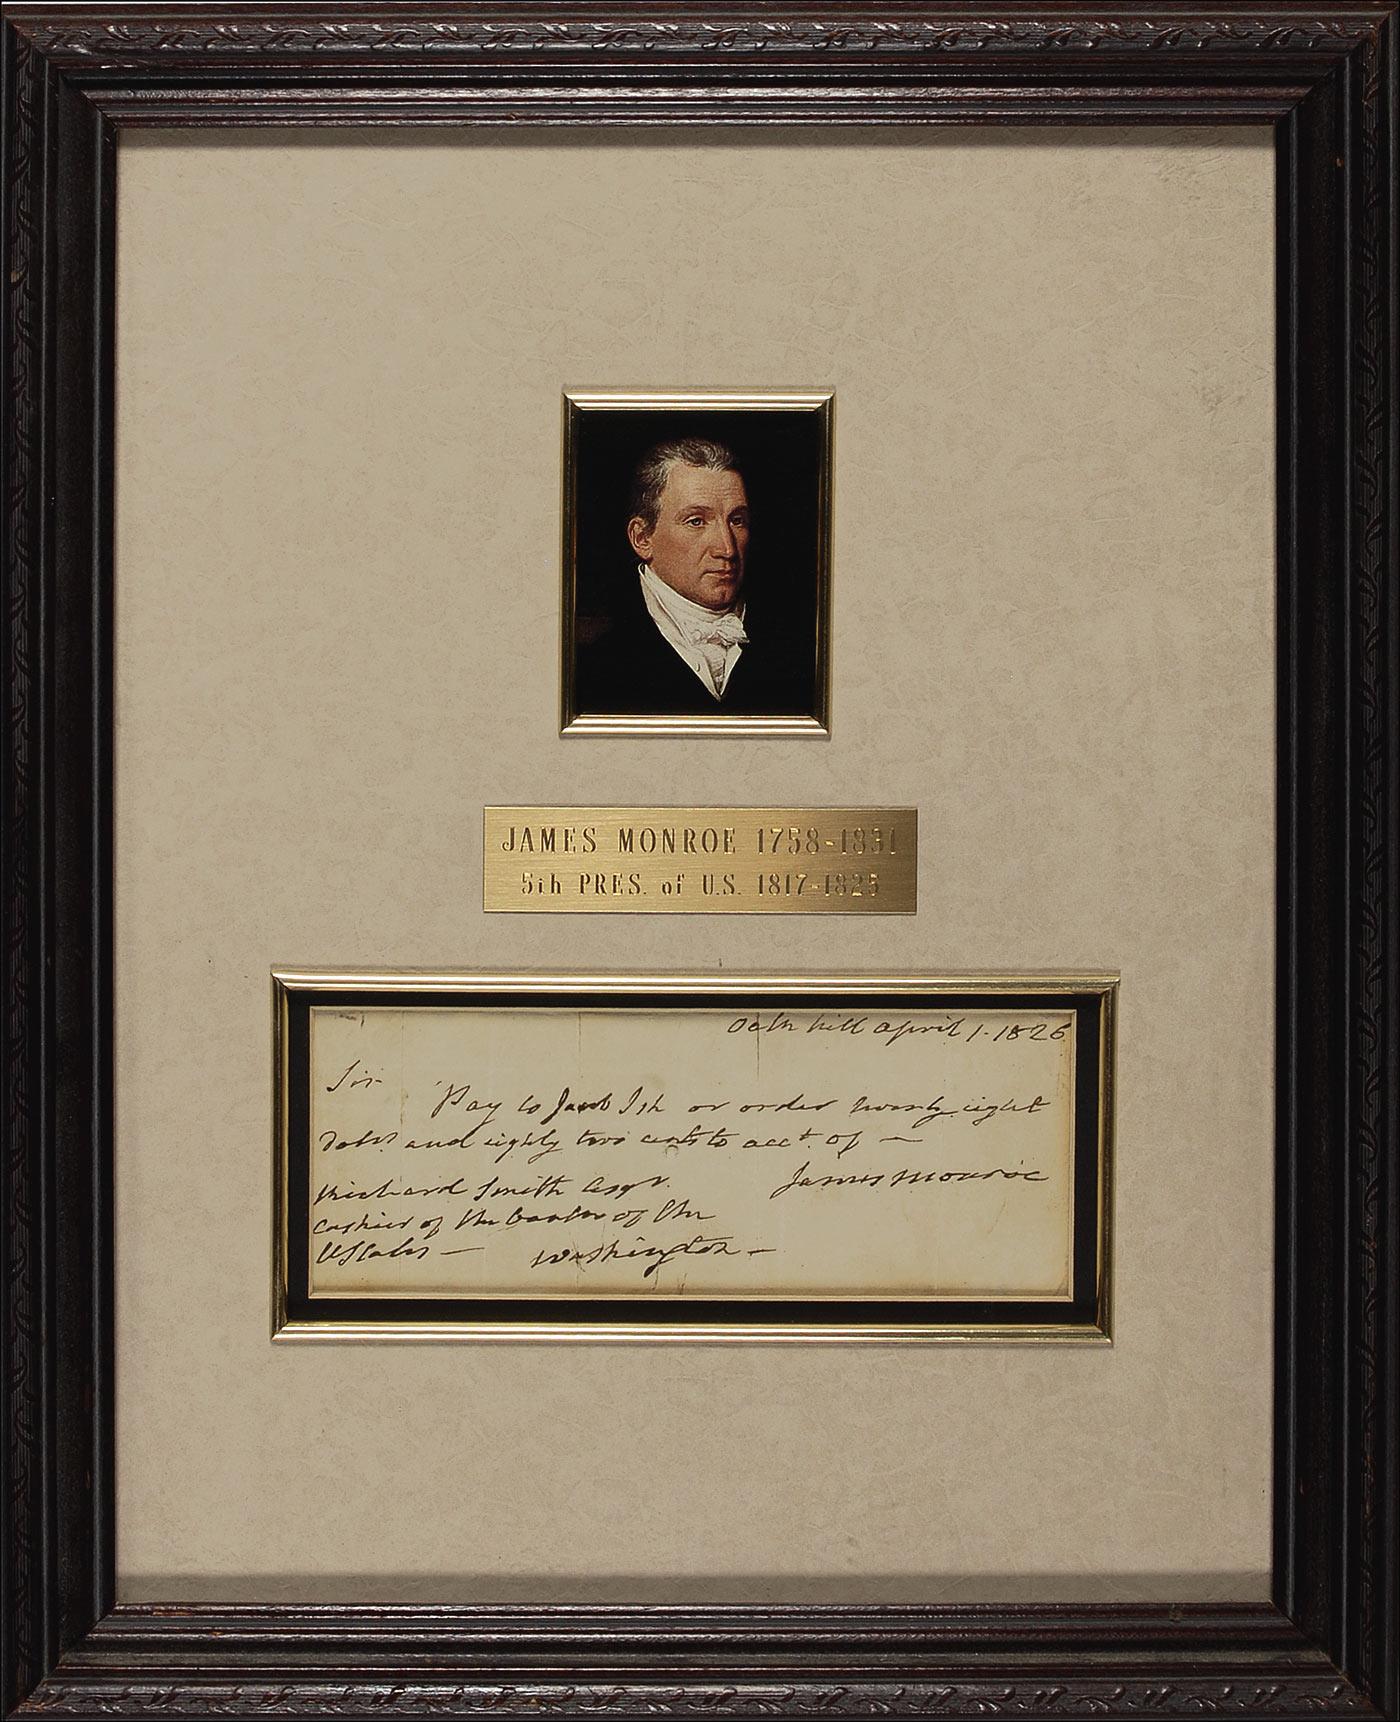 JAMES MONROE 1758-1831
5th PRES. of U.S. 1817-1825
Oak hill april 1. 1826
Sir
Pay to Jacob Ish or order twenty eight
dolrs. and eighty two cents to acct. of —
James Monroe
Richard Smith Esqr.
cashier of the bank of the
UStates — Washington —